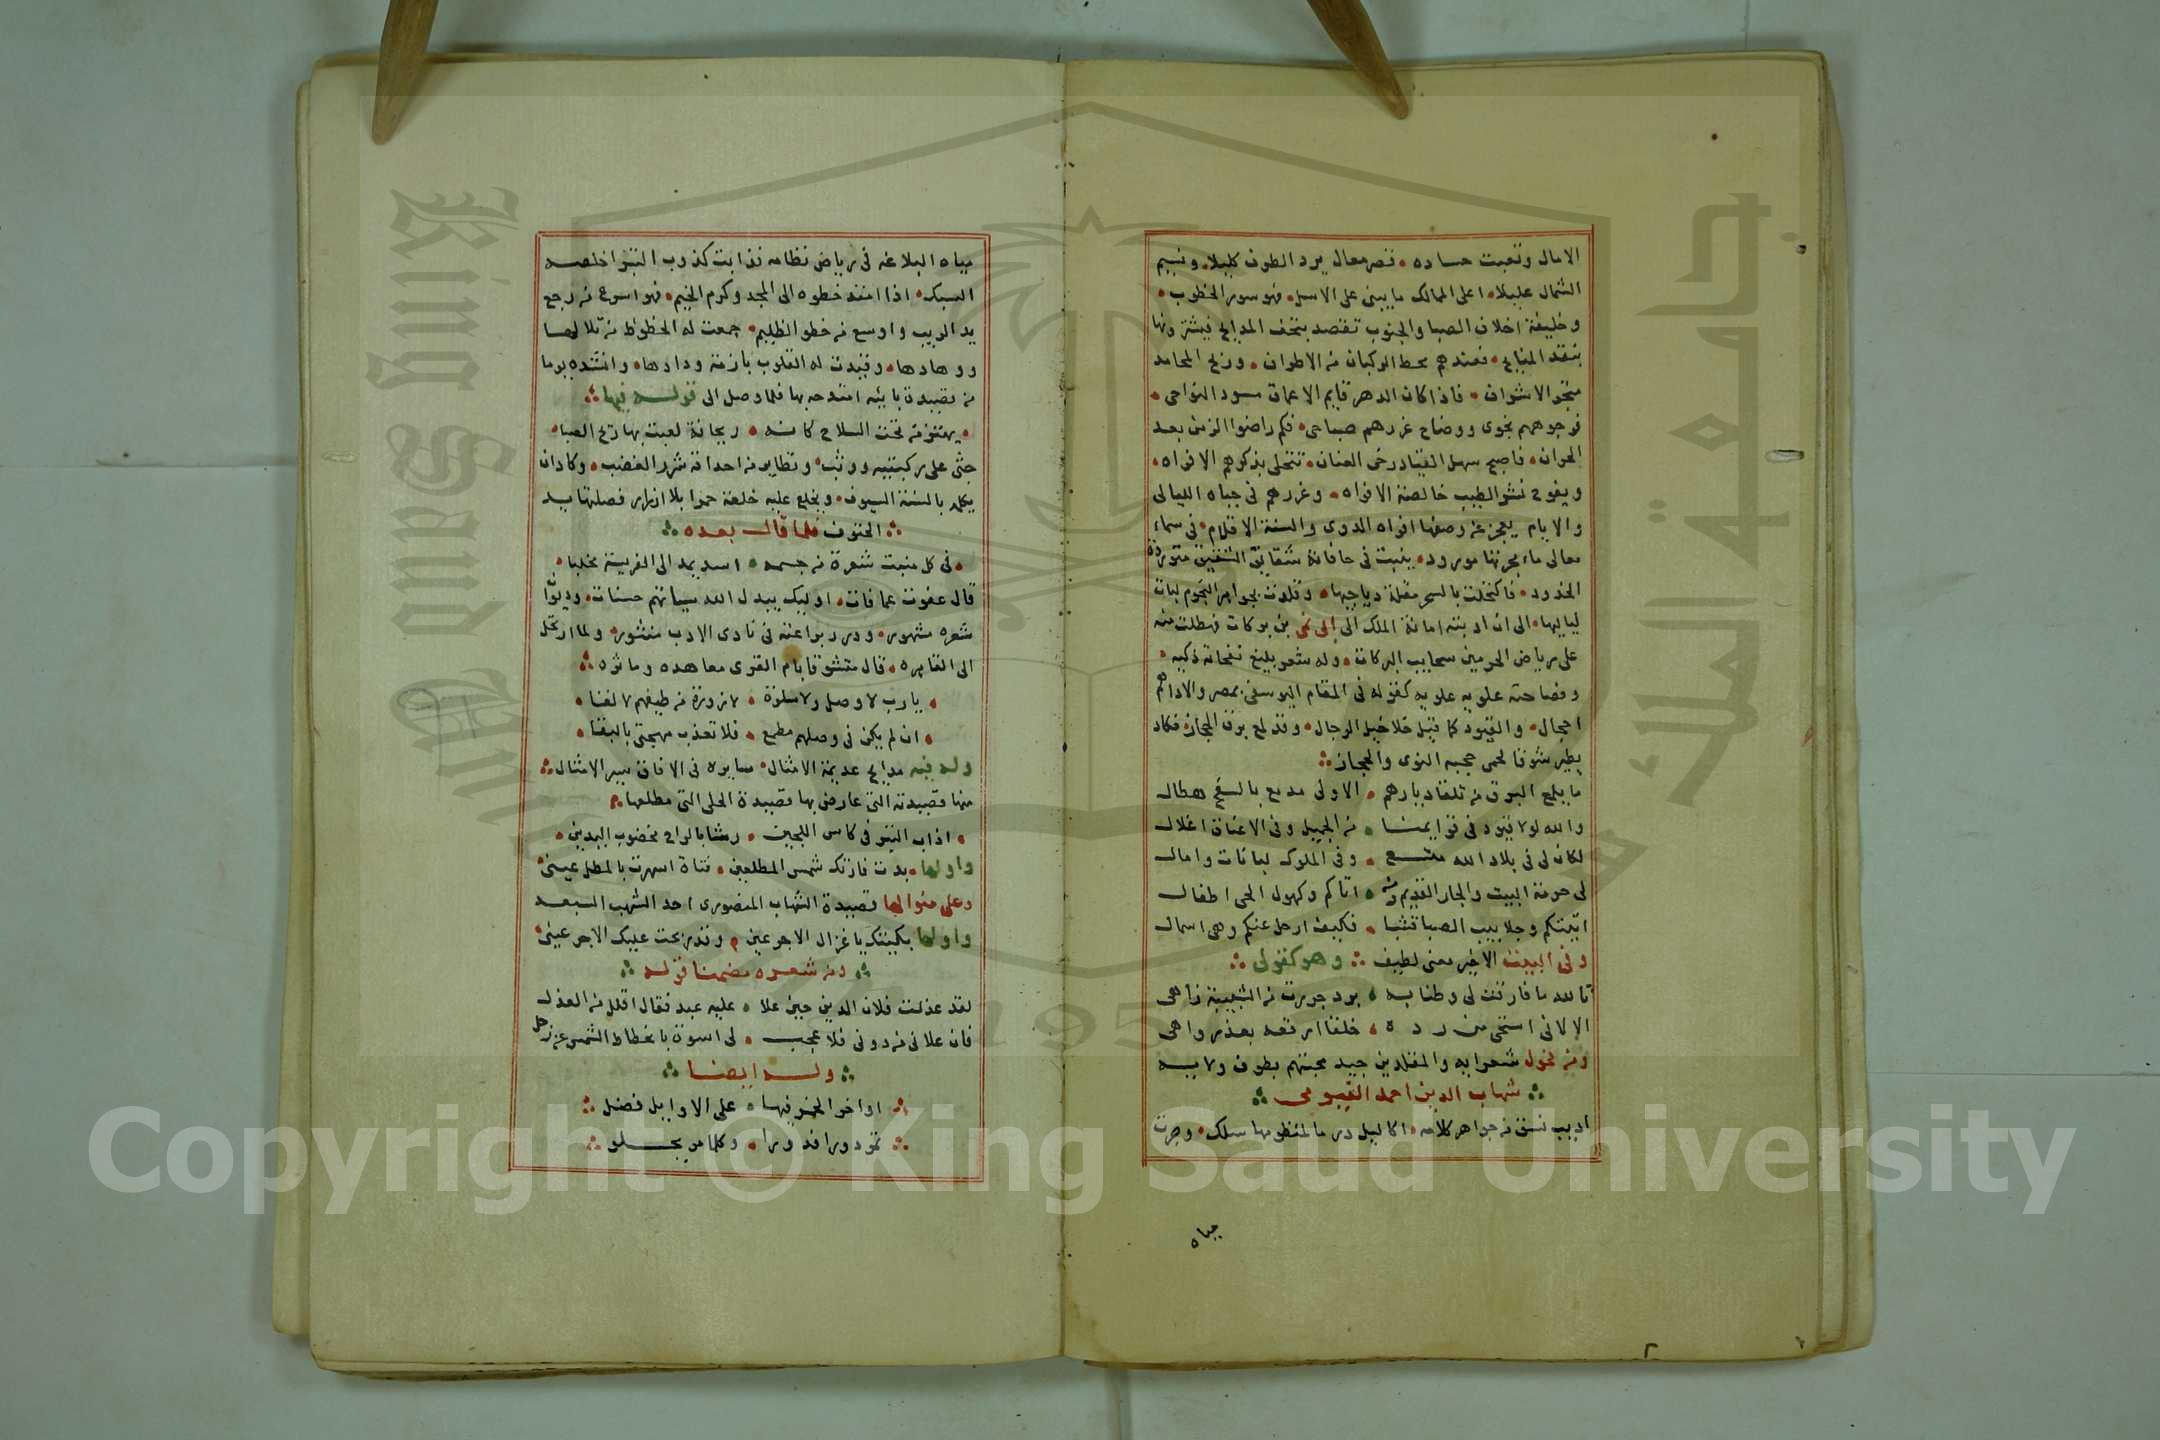 الامال وتعبت حساده • فصر معال يرد الطرف كليلا • ونسيم
الشمال عليلا • اعلى الممالك ما يبنى على الاسل • فهو سور الخطوب •
وخليفة اخلاف الصبا والجنوب تقصد بتحف المدايح فيشترونها
بنقد المنايح • فعندهم محط الركبان من الاطراف • وربح المحامد
متجر الاشراف • فاذا كان الدهر قايم الاعماق مسود النواحى •
فوجوههم نجوى ووضاح غررهم صباحى • فكم راضوا الزمن بعد
الحران • فاصبح سهل القياد رخى العنان • تتحلى بذكرهم الافواه •
ويفوح نشر الطيب خالصة الافواه • وغررهم فى جباه الليالى
والايام يعجز عن وصفها افواه الدوى والسنة الاقلام • فى سماء
معالى ماء بحرتها مورود • ينبت فى حافاته شقايق الشفق متوردة
الخدود • فاكتحلت بالسمر مقلة دياجيها • وقلدت بجواهر النجوم لبات
لياليها • الى ان ادبته امانة الملك الى ابى نمى بن بركات فهطلت منه
على رياض الحرمين سحايب البركات • وله شعر بليغ نفحاته ذكيه •
وفصاحته علويه علويه كقوله فى المقام اليوسفى بمصر والاداهم
احجال • والقيود كما قيل خلاخيل الرجال • وقد لمع برق الحجاز فكاد
يطير شوقا لحمى حجبه النوى والحجاز
ما يلمع البرق من تلقا ديارهم • الاولى مدمع بالسفح هطال
والله لولا قيود فى قوايمنا • من الجميل وفى الاعناق اغلال
لكان لى فى بلاد الله متسع • وفى الملوك لبانات وامال
لى حرمة البيت والجار القديم ومن • اتاكم وكهول الحى اطفال
اتيتكم وجلابيب الصبا قشبا • فكيف ارحل عنكم وهى اسمال
وفى البيت الاخير معنى لطيف وهو كقولى
تالله ما فارقت لى وطنا به • برد جررت من الشبيبة زاهى
الا لانى استحى من رده • خلقا ارقعه بعذر واهى
ومن فحول شعرايه والمقلدين جيد محبتهم بطوف ولايه
شهاب الدين احمد الفيومى
اديب نسق من جواهر كلامه • اكاليل در ما لمنظومها سلك • وجرت
مياه
مياه البلاغه فى رياض نظامه فذابت كذوب التبر اخلصه
السبك • اذا امتد خطوه الى المجد وكرم الخيم • فهو اسرع من رجع
يد الريب واوسع من خطو الظليم • جمعت له الحظوظ من تلالها
ووهادها • وقيدت له القلوب بازمة ودادها • وانشده يوما
من قصيدة بايئه امتدحه بها فلما وصل الى قوله فيها
• يهتز من تحت السلاح كانه • ريحانة لعبت بها ريح الصبا •
جثى على ركبتيه ووثب • وتطاير من احداقه شرر الغضب • وكاد ان
يكلمه بالسنة السيوف • ويخلع عليه خلعة حمرا بلا ازرار فصلتها يد
الحتوف فلما قال بعده
• فى كل منبت شعرة من جسمه • اسد يمد الى الفريسة مخلبا •
قال عفوت عما فات • اوليك يبدل الله سيياتهم حسنات • وديوان
شعره مشهور • ودرر براعته فى نادى الادب منثور • ولما ارتحل
الى القاهره • قال متشوقا بام القرى معاهده وماثره
• يارب لا وصل ولا سلوة • لا زورة من طيفهم لا لقا •
• ان لم يكن فى وصلهم مطمع • فلا تعذب مهجتى بالبقا •
وله فيه مدايح عديمة الامثال • سايره فى الافاق سير الامثال
منها قصيدته التى عارض بها قصيدة الحلى التى مطلعها
• اذاب التبر فى كاس اللجين • رشا بالراح مخضوب اليدين •
واولها • بدت فارتك شمس المطلعين • فتاة اسهرت بالمطل عينى •
وعلى منوالها قصيدة الشهاب المنصورى احد الشهب السبعه
واولها بكيتك يا غزال الاجرعين • وقد نزحت عليك الاجر عينى •
ومن شعره مضمنا قوله
لقد عذلت فلان الدين حين علا • عليه عبد فقال اقلل من العذل
فان علانى من دونى فلا عجب • لى اسوة بانحطاط الشمس عن زحل
وله ايضا
اواخر الخمر فيها • على الاوايل فضل
تمر دورا فدورا • وكلما مر يحلو
Copyright © King Saud University
King Saud University
1957